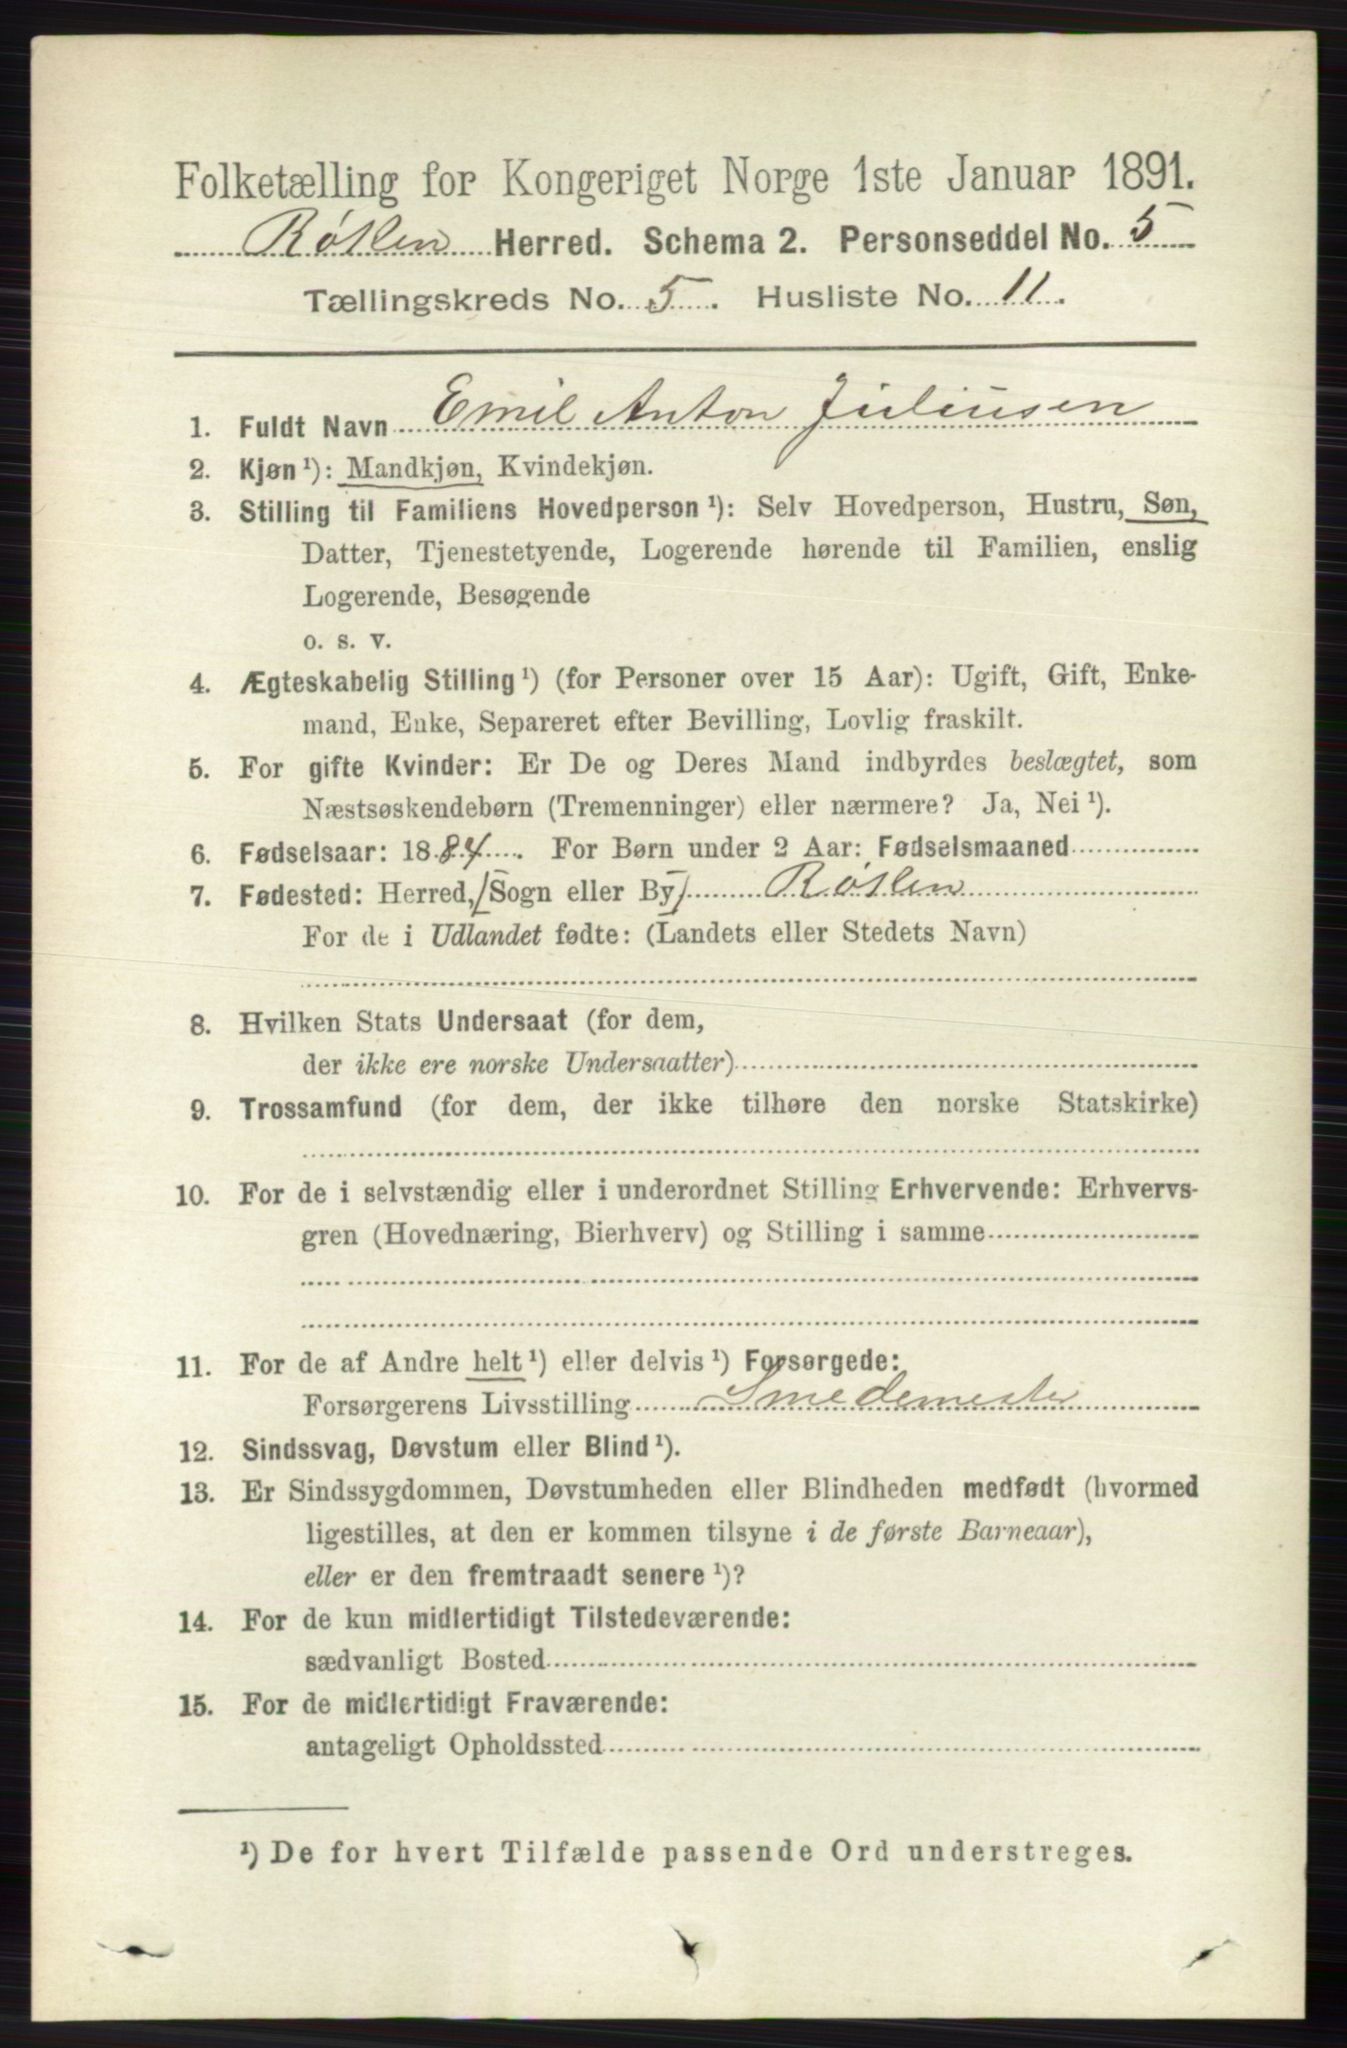 Folketælling for Kongeriget Norge 1ste Januar 1891.
Røken Herred. Schema 2. Personseddel No. 5
Tællingskreds No. 5. Husliste No. 11.
1. Fuldt Navn Emil Anton Juliusen
2. Kjøn ¹): Mandkjøn, Kvindekjøn.
3. Stilling til Familiens Hovedperson ¹): Selv Hovedperson, Hustru, Søn,
Datter, Tjenestetyende, Logerende hørende til Familien, enslig
Logerende, Besøgende
o. s. v.
4. Ægteskabelig Stilling ¹) (for Personer over 15 Aar): Ugift, Gift, Enke-
mand, Enke, Separeret efter Bevilling, Lovlig fraskilt.
5. For gifte Kvinder: Er De og Deres Mand indbyrdes beslægtet, som
Næstsøskendebørn (Tremenninger) eller nærmere? Ja, Nei ¹).
6. Fødselsaar: 1884. For Børn under 2 Aar: Fødselsmaaned
7. Fødested: Herred, [Sogn eller By] Røken
For de i Udlandet fødte: (Landets eller Stedets Navn)
8. Hvilken Stats Undersaat (for dem,
der ikke ere norske Undersaatter)
9. Trossamfund (for dem, der ikke tilhøre den norske Statskirke)
10. For de i selvstændig eller i underordnet Stilling Erhvervende: Erhvervs-
gren (Hovednæring, Bierhverv) og Stilling i samme
11. For de af Andre helt ¹) eller delvis ¹) Forsørgede:
Forsørgerens Livsstilling Smedemester
12. Sindssvag, Døvstum eller Blind ¹).
13. Er Sindssygdommen, Døvstumheden eller Blindheden medfødt (hvormed
ligestilles, at den er kommen tilsyne i de første Barneaar),
eller er den fremtraadt senere ¹)?
14. For de kun midlertidigt Tilstedeværende:
sædvanligt Bosted
15. For de midlertidigt Fraværende:
antageligt Opholdssted
¹) De for hvert Tilfælde passende Ord understreges.